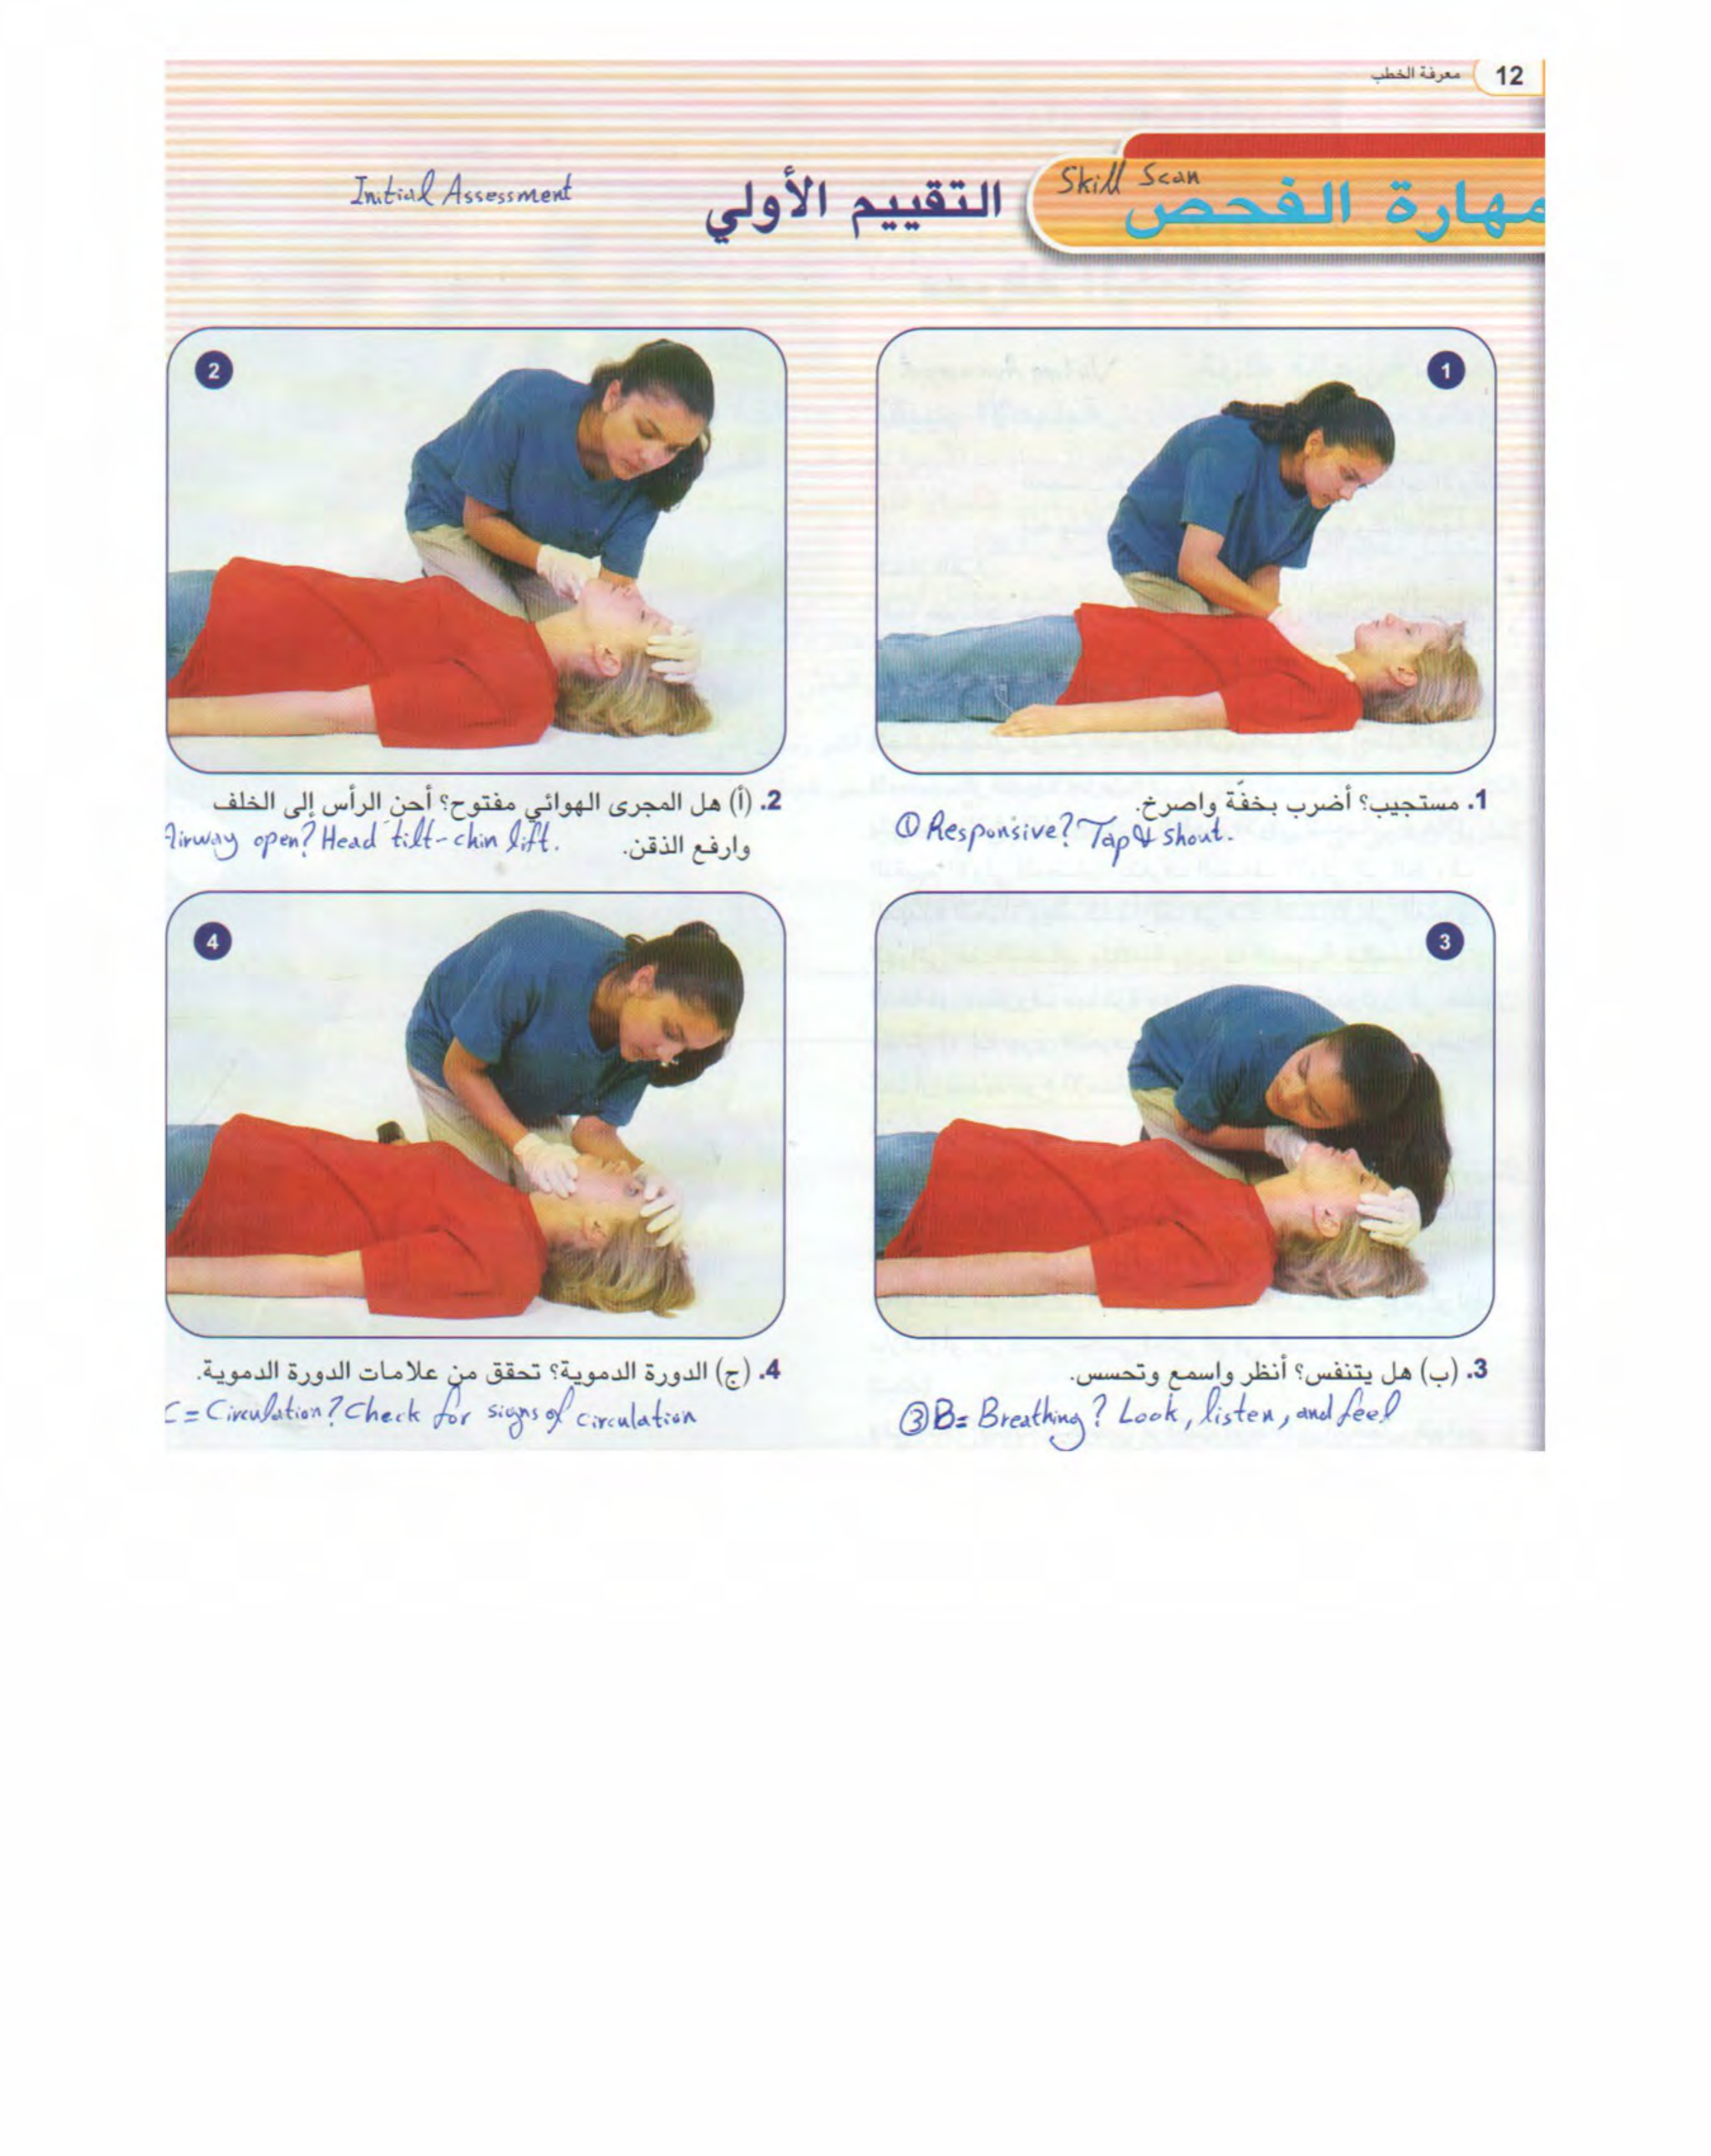 12 معرفة الخطب
مهارة الفحص
Skill Scan
التقييم الأولي
Initial Assessment
1
2
1. مستجيب؟ أضرب بخفّة واصرخ.
① Responsive? Tap & shout.
2. (أ) هل المجرى الهوائي مفتوح؟ أحن الرأس إلى الخلف
وارفع الذقن.
Airway open? Head tilt-chin lift.
3
4
3. (ب) هل يتنفس؟ أنظر واسمع وتحسس.
③ B= Breathing? Look, listen, and feel
4. (ج) الدورة الدموية؟ تحقق من علامات الدورة الدموية.
C = Circulation? Check for signs of circulation